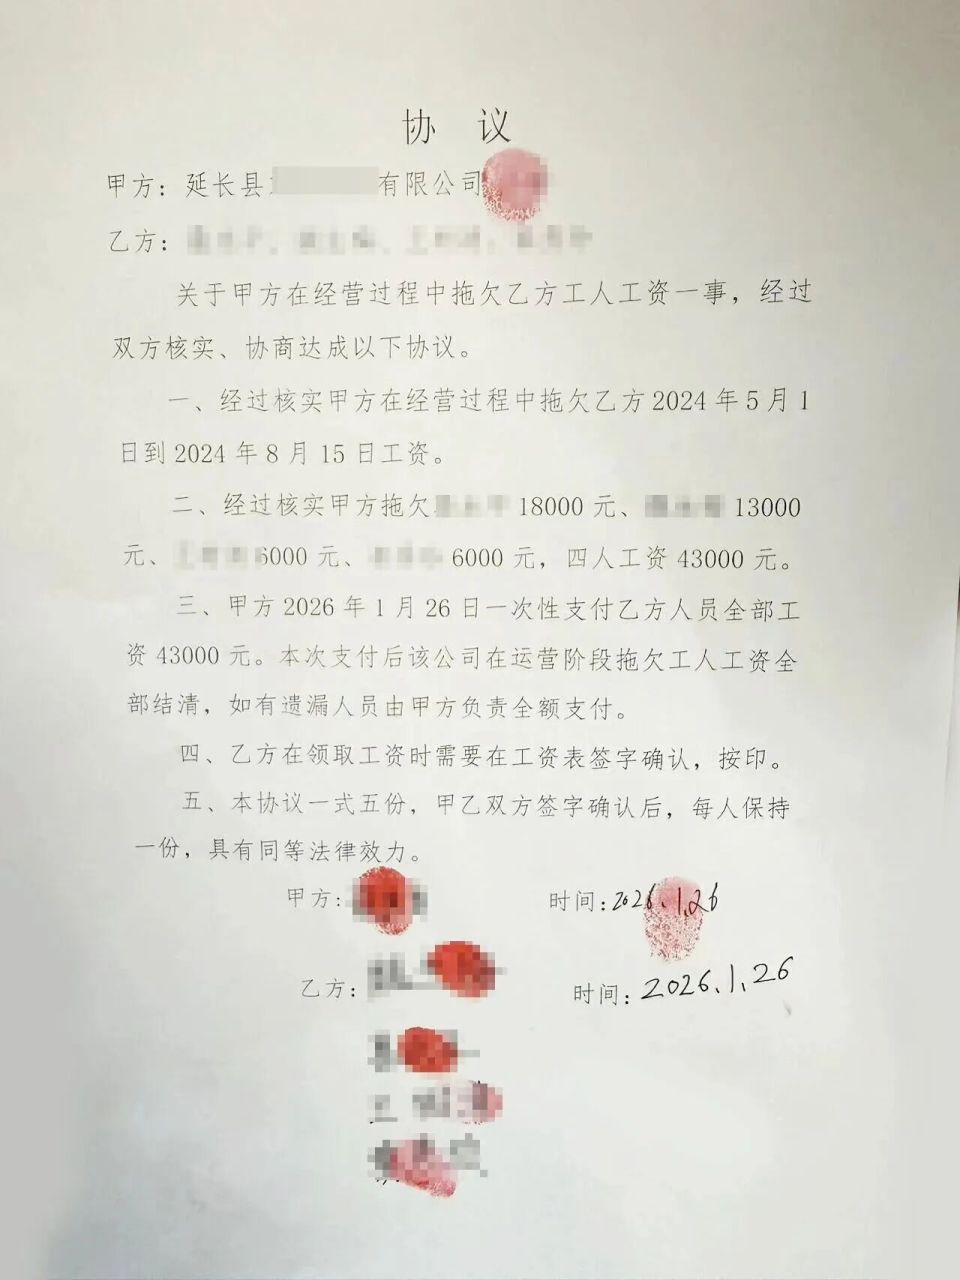 协 议
甲方：延长县 有限公司
乙方：
关于甲方在经营过程中拖欠乙方工人工资一事，经过
双方核实、协商达成以下协议。
一、经过核实甲方在经营过程中拖欠乙方 2024 年 5 月 1
日到 2024 年 8 月 15 日工资。
二、经过核实甲方拖欠 18000 元、 13000
元、 6000 元、 6000 元，四人工资 43000 元。
三、甲方 2026 年 1 月 26 日一次性支付乙方人员全部工
资 43000 元。本次支付后该公司在运营阶段拖欠工人工资全
部结清，如有遗漏人员由甲方负责全额支付。
四、乙方在领取工资时需要在工资表签字确认，按印。
五、本协议一式五份，甲乙双方签字确认后，每人保持
一份，具有同等法律效力。
甲方： 时间：2026.1.26
乙方： 时间：2026.1.26